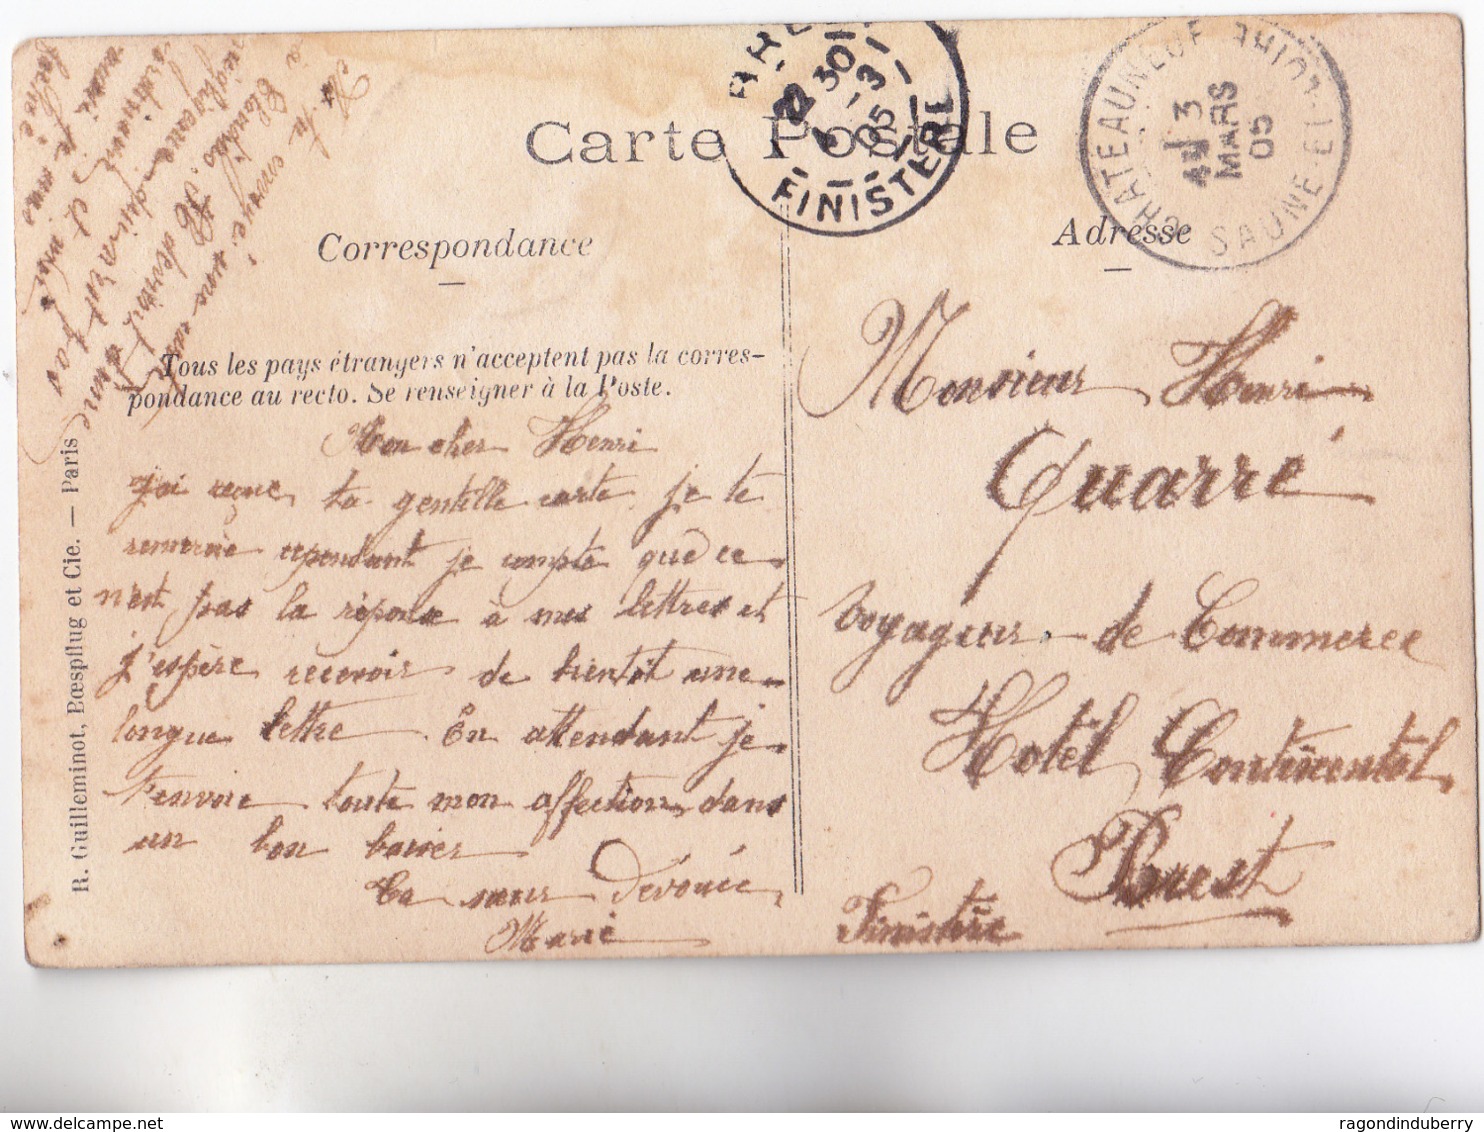 Carte Postale
Correspondance
Adresse
Tous les pays étrangers n'acceptent pas la corres-
pondance au recto. Se renseigner à la Poste.
R. Guilleminot, Bœspflug et Cie. — Paris
CHATEAUNEUF
SAONE-ET-LOIRE
3
MARS
05
BREST
22 30
4 - 3
05
FINISTERE
As-tu envoyé une carte
a Blanche.
Mon cher Henri
J'ai reçue ta gentille carte je te
remercie cependant je compte que ce
n'est pas la réponse à mes lettres et
j'espère recevoir de bientôt une
longue lettre. En attendant je
t'envoie toute mon affection dans
un bon baiser
Ta sœur Dévouée
Marie
Monsieur Henri
Quarré
Voyageur de Commerce
Hotel Continental
Brest
Finistère
ragondinduberry